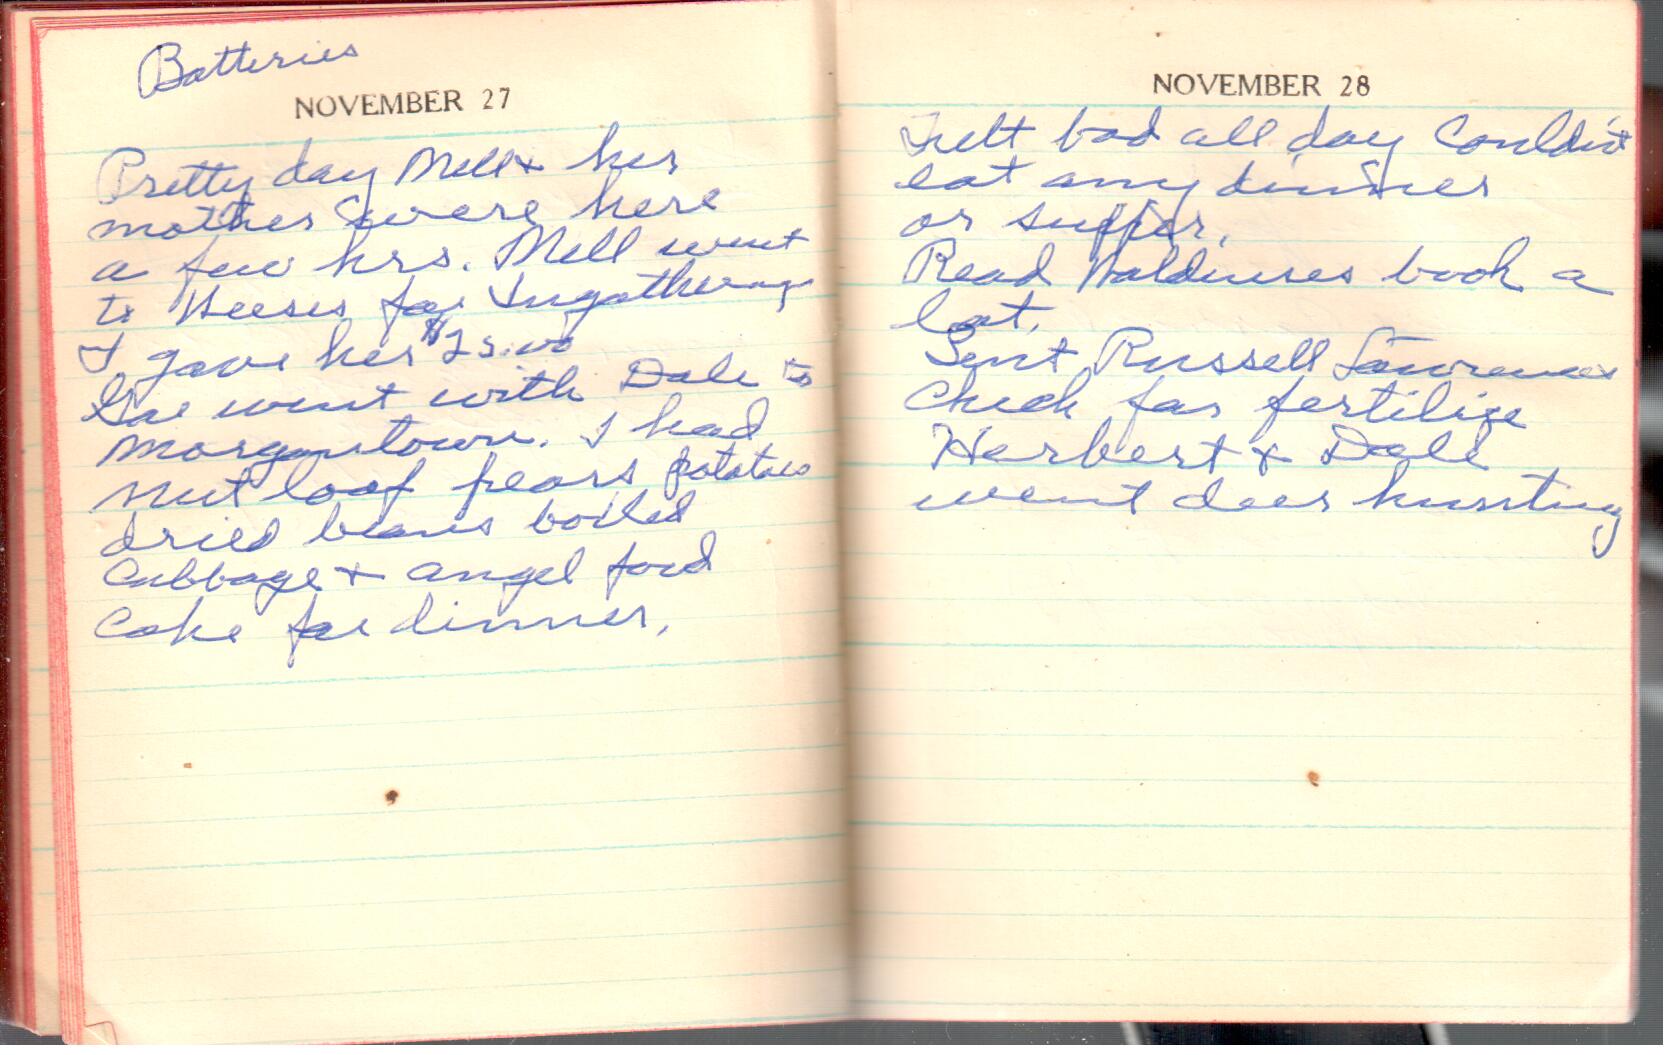 Batteries
NOVEMBER 27
Pretty day Mell & her
mother were here
a few hrs. Mell went
to Heeses for Ingathering
I gave her $25.00
Gae went with Dale to
Morgantown. I had
nut loaf pears potatoes
dried beans boiled
Cabbage & angel food
Cake for dinner.
NOVEMBER 28
Felt bad all day Couldn't
eat any dinner
or supper.
Read book a
lot.
Sent Russell Lawrence
Check for fertilize
Herbert & Dale
went deer hunting